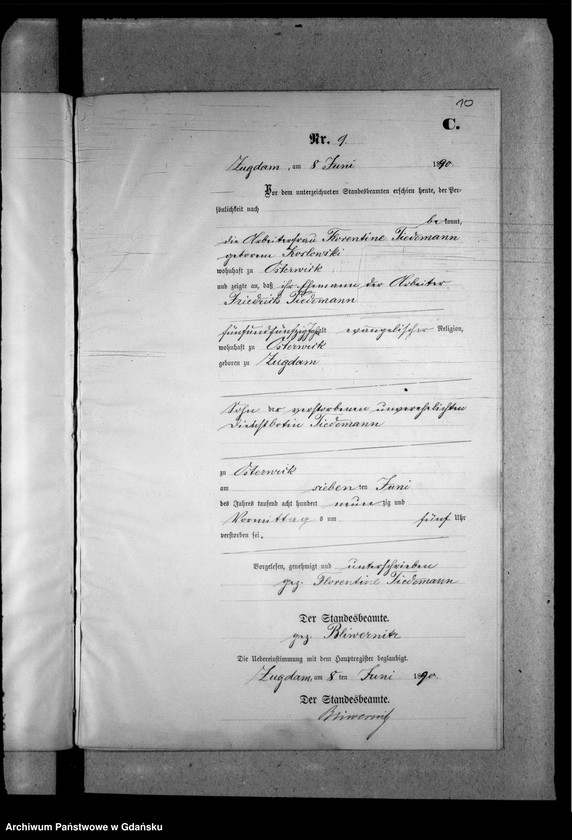 10
C.
Nr. 9
Zugdam, am 8 Juni 1890.
Vor dem unterzeichneten Standesbeamten erschien heute, der Per-
sönlichkeit nach
bekannt,
die Arbeiterfrau Florentine Tiedemann
geborene Koslowski
wohnhaft zu Osterwick
und zeigte an, daß ihr Ehemann der Arbeiter
Friedrich Tiedemann
fünfundfünfzig Jahre alt evangelischer Religion,
wohnhaft zu Osterwick
geboren zu Zugdam
Sohn der verstorbenen unverehelichten
Dienstbotin Tiedemann
zu Osterwick
am sieben ten Juni
des Jahres tausend acht hundert neun zig und
Vormittags um fünf Uhr
verstorben sei.
Vorgelesen, genehmigt und unterschrieben
gez. Florentine Tiedemann
Der Standesbeamte.
gez. Bliwernitz
Die Uebereinstimmung mit dem Hauptregister beglaubigt.
Zugdam, am 8 ten Juni 1890.
Der Standesbeamte.
Bliwernitz
Archiwum Państwowe w Gdańsku